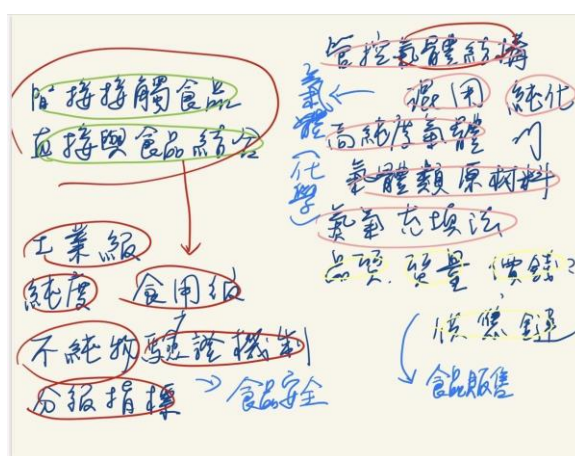 間接接觸食品
直接與食品結合
工業級
純度 食用級
不純物驗證機制
分級指標 → 食品安全
管控氣體結構
氣體(化學) ← 混用 純化
高純度氣體
氣體類原材料
氮氣充填法
品質 質量 價錢?
供應鏈
食品販售